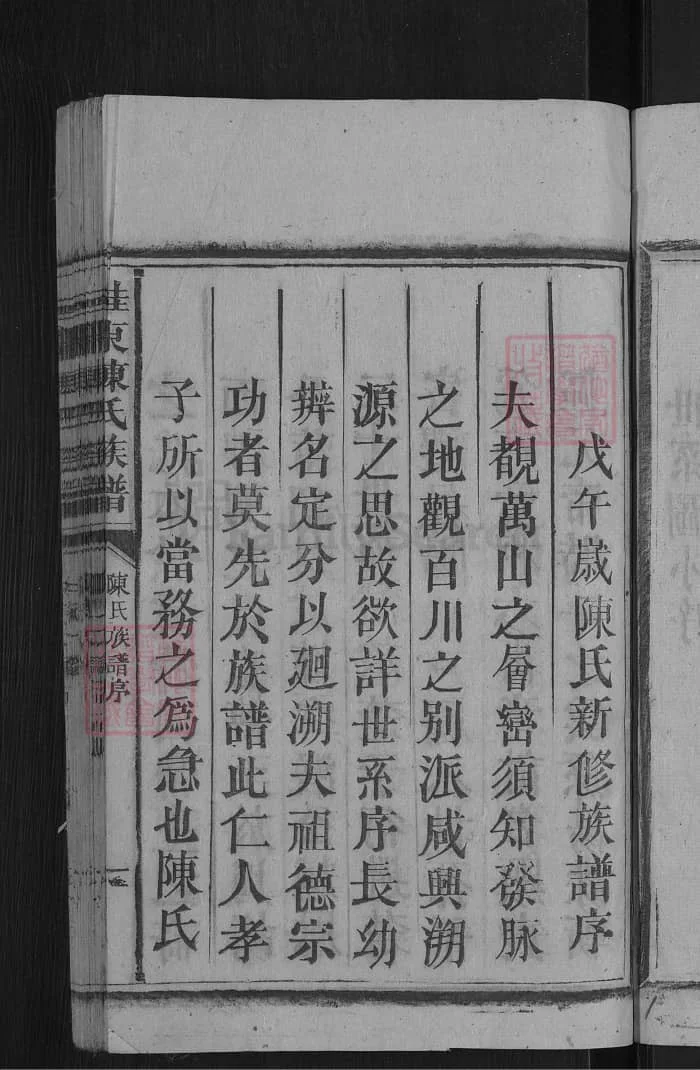 戊午歲陳氏新修族譜序
夫覩萬山之層巒須知發脉
之地觀百川之别派咸興溯
源之思故欲詳世系序長幼
辨名定分以廻溯夫祖德宗
功者莫先於族譜此仁人孝
子所以當務之爲急也陳氏
桂東陳氏族譜
陳氏族譜序
一